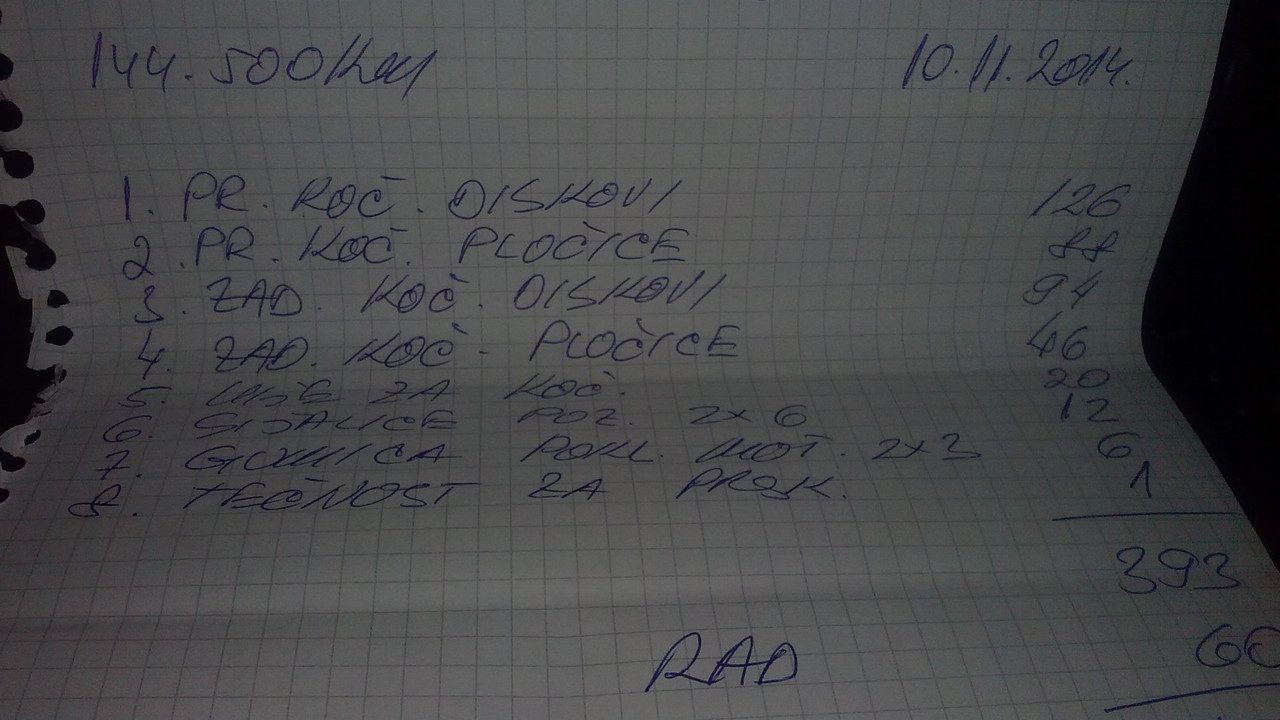 144.500 Km 10.11.2014.
1. PR. KOČ. DISKOVI 126
2. PR. KOČ. PLOČICE 88
3. ZAD. KOČ. DISKOVI 94
4. ZAD. KOČ. PLOČICE 46
5. ULJE ZA KOČ. 20
6. SIJALICE POZ. 2x6 12
7. GUMICA POKL. MOT. 2x3 6
8. TEČNOST ZA 1
393
RAD 60